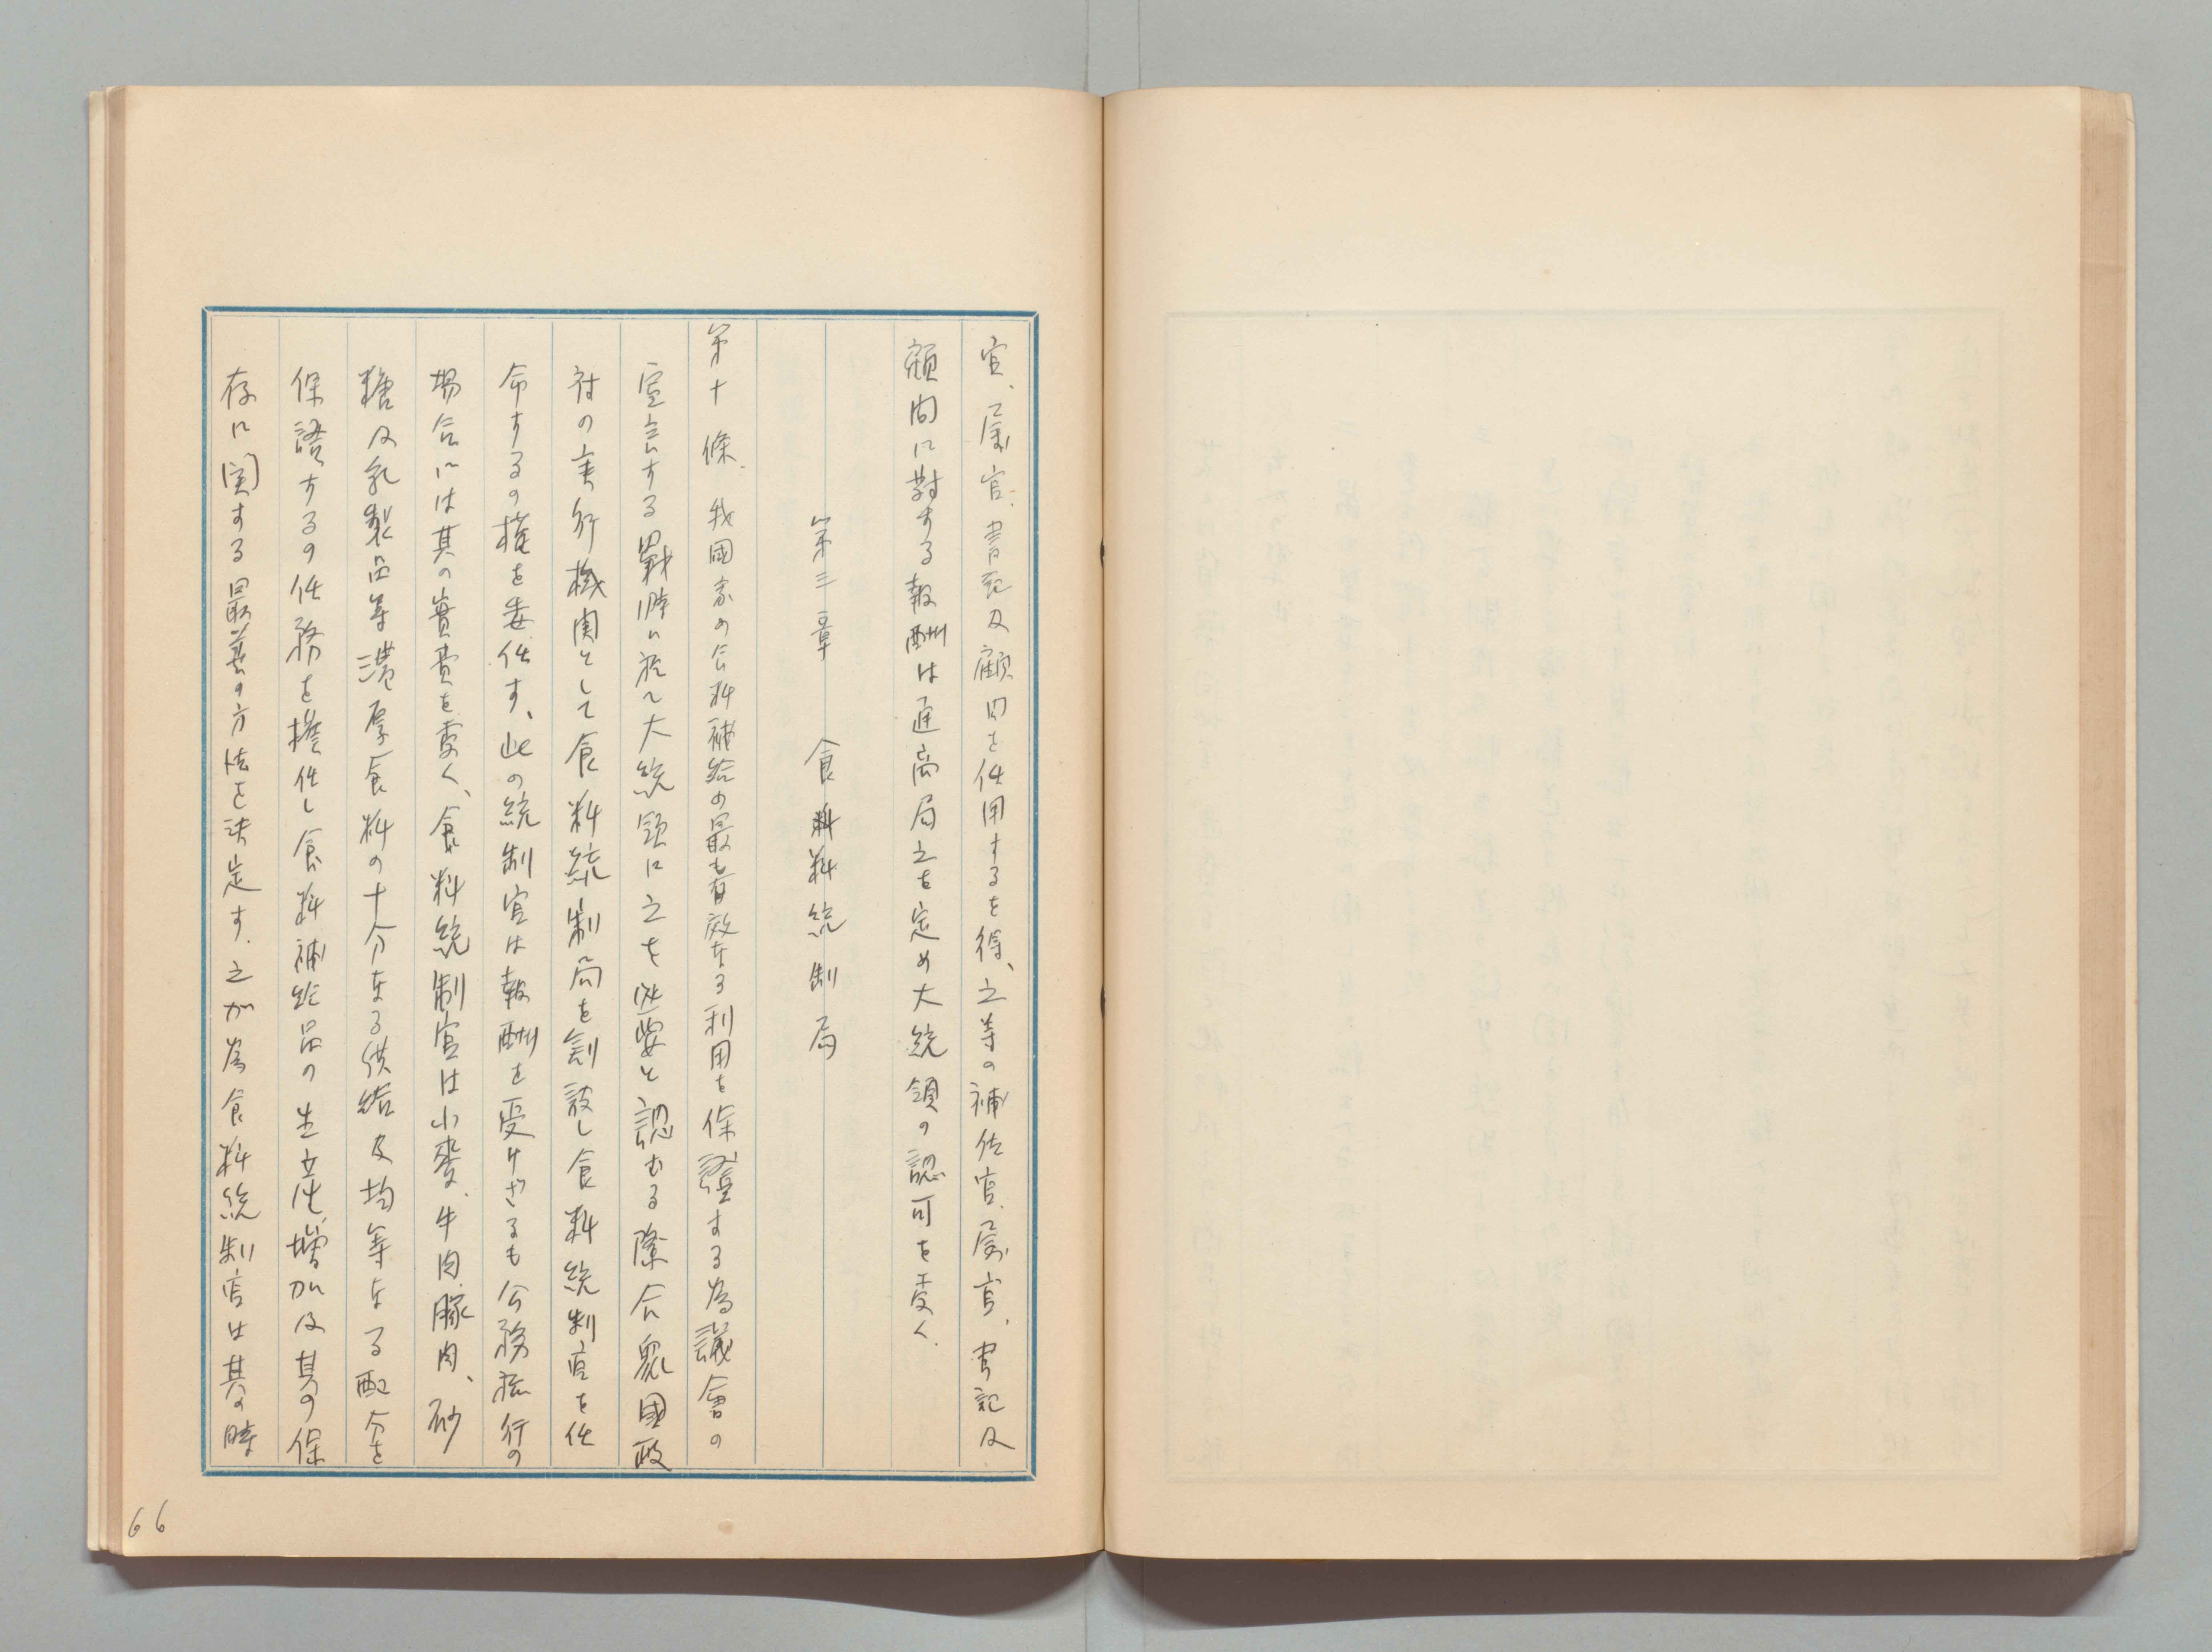 官、属官、書記及顧問を任用するを得、之等の補佐官、属官、書記及
顧問に對する報酬は逓商局之を定め大統領の認可を受く、
第三章 食料統制局
第十條、我國家の食料補給の最も有效なる利用を保證する為議會の
宣言する戰時に於て大統領に之を必要と認むる際合衆國政
府の実行機関として食料統制局を創設し食料統制官を任
命するの権を委任す、此の統制官は報酬を受けざるも公務旅行の
場合には其の實費を受く、食料統制官は小麥、牛肉、豚肉、砂
糖及乳製品等濃厚食料の十分なる供給及均等なる配分を
保證するの任務を擔任し食料補給品の生産増加及其の保
存に関する最善の方法を決定す、之が為食料統制官は其の時
66